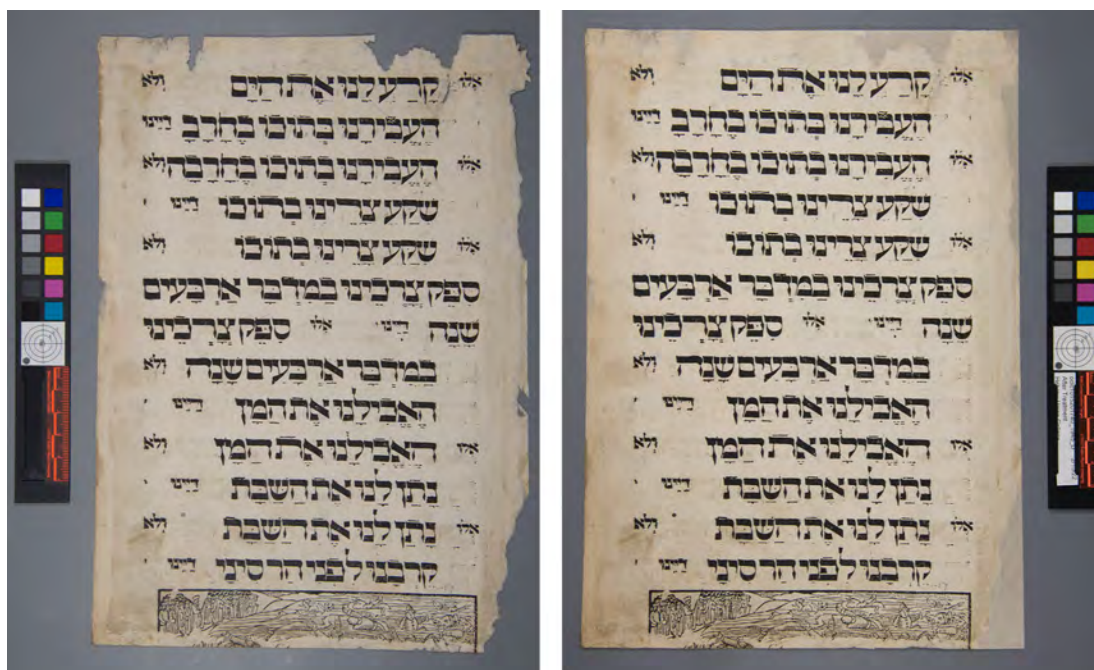 אִלּוּ קָרַע לָנוּ אֶת הַיָּם וְלֹא
הֶעֱבִירָנוּ בְּתוֹכוֹ בֶּחָרָבָ דַּיֵּינוּ
אִלּוּ הֶעֱבִירָנוּ בְּתוֹכוֹ בֶּחָרָבָה וְלֹא
שִׁקַּע צָרֵינוּ בְּתוֹכוֹ דַּיֵּינוּ
אִלּוּ שִׁקַּע צָרֵינוּ בְּתוֹכוֹ וְלֹא
סִפֵּק צָרְכֵינוּ בַּמִּדְבָּר אַרְבָּעִים
שָׁנָה דַּיֵּינוּ אִלּוּ סִפֵּק צָרְכֵינוּ
בַּמִּדְבָּר אַרְבָּעִים שָׁנָה וְלֹא
הֶאֱכִילָנוּ אֶת הַמָּן דַּיֵּינוּ
אִלּוּ הֶאֱכִילָנוּ אֶת הַמָּן וְלֹא
נָתַן לָנוּ אֶת הַשַּׁבָּת דַּיֵּינוּ
אִלּוּ נָתַן לָנוּ אֶת הַשַּׁבָּת וְלֹא
קֵרְבָנוּ לִפְנֵי הַר סִינַי דַּיֵּינוּ
אִלּוּ קָרַע לָנוּ אֶת הַיָּם וְלֹא
הֶעֱבִירָנוּ בְּתוֹכוֹ בֶּחָרָבָ דַּיֵּינוּ
אִלּוּ הֶעֱבִירָנוּ בְּתוֹכוֹ בֶּחָרָבָה וְלֹא
שִׁקַּע צָרֵינוּ בְּתוֹכוֹ דַּיֵּינוּ
אִלּוּ שִׁקַּע צָרֵינוּ בְּתוֹכוֹ וְלֹא
סִפֵּק צָרְכֵינוּ בַּמִּדְבָּר אַרְבָּעִים
שָׁנָה דַּיֵּינוּ אִלּוּ סִפֵּק צָרְכֵינוּ
בַּמִּדְבָּר אַרְבָּעִים שָׁנָה וְלֹא
הֶאֱכִילָנוּ אֶת הַמָּן דַּיֵּינוּ
אִלּוּ הֶאֱכִילָנוּ אֶת הַמָּן וְלֹא
נָתַן לָנוּ אֶת הַשַּׁבָּת דַּיֵּינוּ
אִלּוּ נָתַן לָנוּ אֶת הַשַּׁבָּת וְלֹא
קֵרְבָנוּ לִפְנֵי הַר סִינַי דַּיֵּינוּ
After Treatment